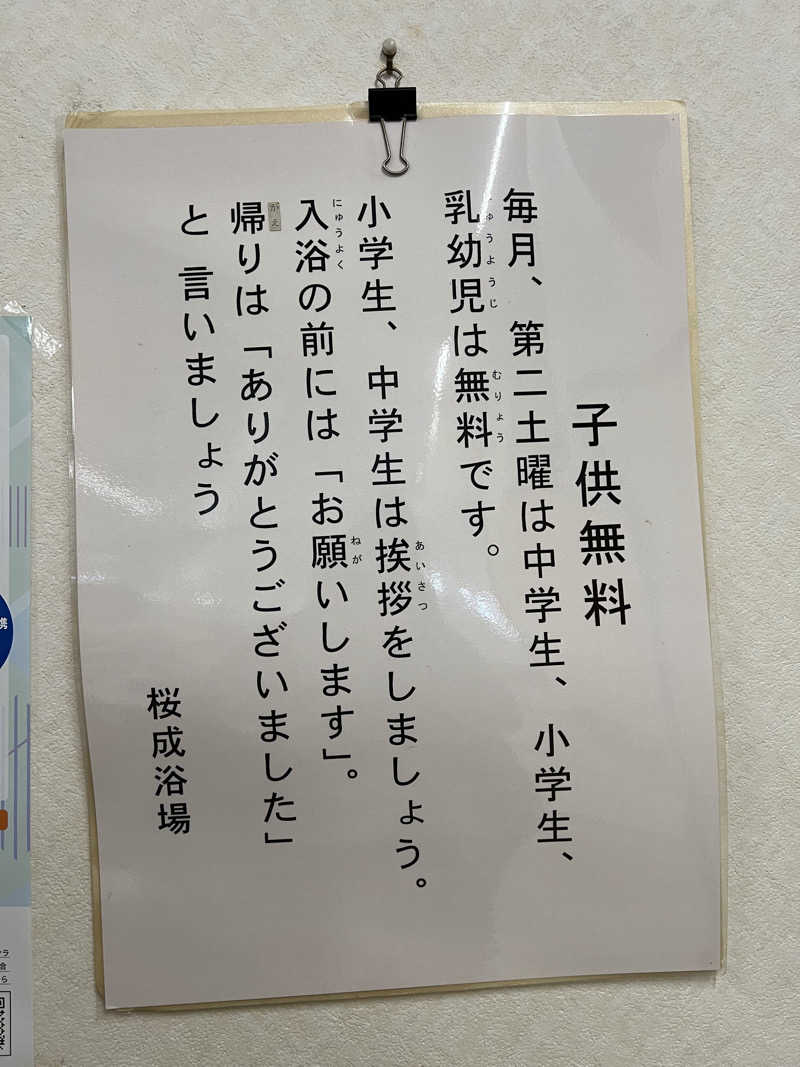 子供無料
毎月、第二土曜は中学生、小学生、
乳幼児は無料です。
小学生、中学生は挨拶をしましょう。
入浴の前には「お願いします」。
帰りは「ありがとうございました」
と 言いましょう
桜成浴場